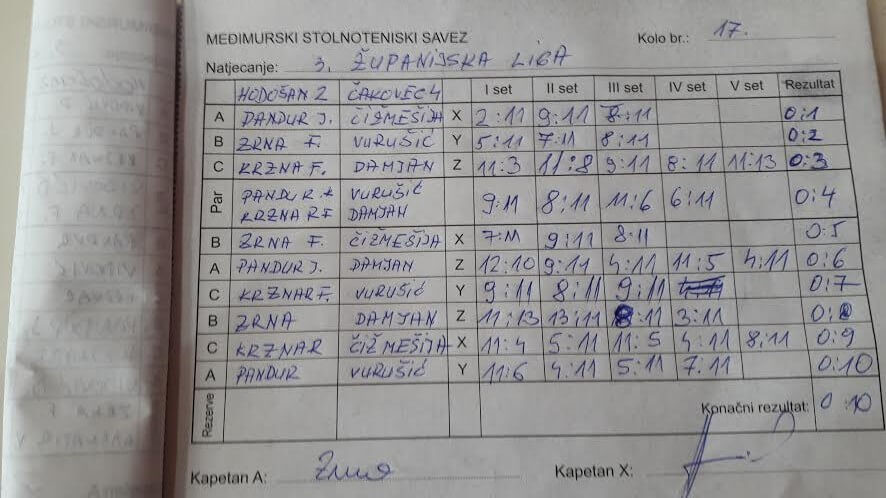 MEĐIMURSKI STOLNOTENISKI SAVEZ Kolo br.: 17.
Natjecanje: 3. ŽUPANIJSKA LIGA
HODOŠAN 2 ČAKOVEC 4 I set II set III set IV set V set Rezultat
A PANDUR J. ČIŽMEŠIJA X 2:11 9:11 8:11 0:1
B ZRNA F. VURUŠIĆ Y 5:11 7:11 8:11 0:2
C KRZNA F. DAMJAN Z 11:3 11:8 9:11 8:11 11:13 0:3
Par PANDUR + VURUŠIĆ 9:11 8:11 11:6 6:11 0:4
KRZNAR F DAMJAN
B ZRNA F. ČIŽMEŠIJA X 7:11 9:11 8:11 0:5
A PANDUR J. DAMJAN Z 12:10 9:11 4:11 11:5 4:11 0:6
C KRZNAR F. VURUŠIĆ Y 9:11 8:11 9:11 0:7
B ZRNA DAMJAN Z 11:13 13:11 8:11 3:11 0:8
C KRZNAR ČIŽMEŠIJA X 11:4 5:11 11:5 4:11 8:11 0:9
A PANDUR VURUŠIĆ Y 11:6 4:11 5:11 7:11 0:10
Rezerve Konačni rezultat: 0:10
Kapetan A: Kapetan X: